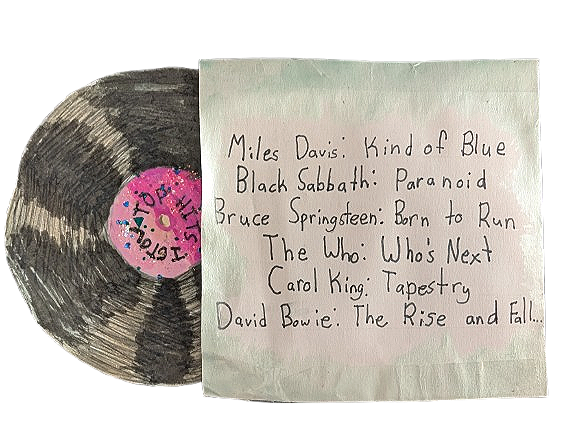 Miles Davis: Kind of Blue
Black Sabbath: Paranoid
Bruce Springsteen: Born to Run
The Who: Who's Next
Carol King: Tapestry
David Bowie: The Rise and Fall...
TOP HITS